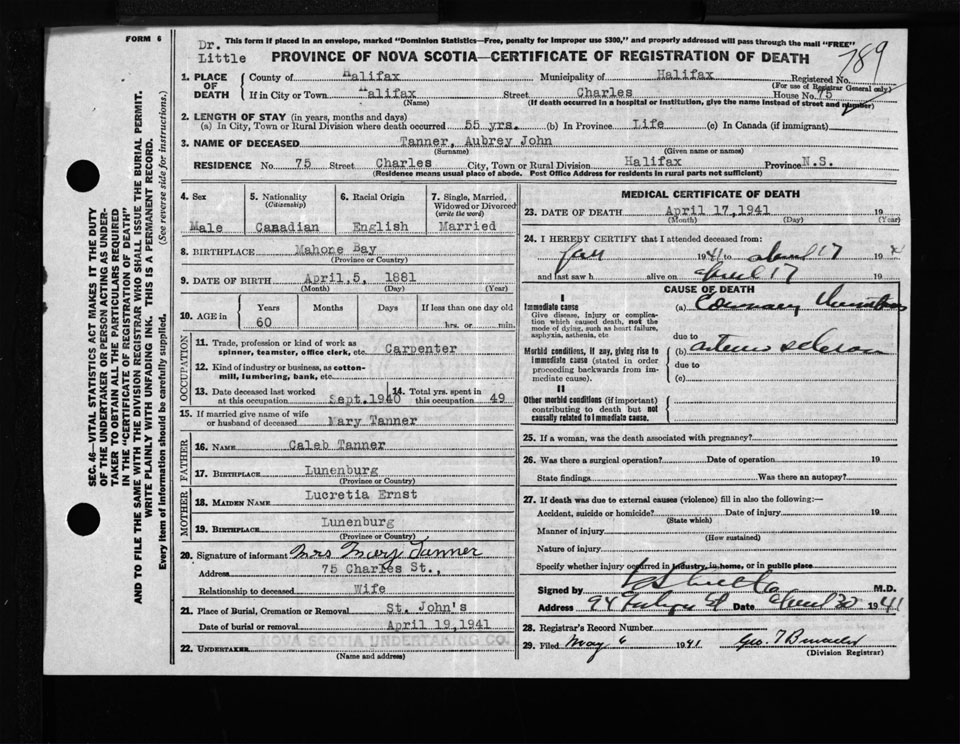 FORM 6
Dr. Little
This form if placed in an envelope, marked "Dominion Statistics—Free, penalty for improper use $300," and properly addressed will pass through the mail "FREE"
PROVINCE OF NOVA SCOTIA—CERTIFICATE OF REGISTRATION OF DEATH
789
1. PLACE OF DEATH County of Halifax Municipality of Halifax Registered No.
(For use of Registrar General only)
If in City or Town Halifax Street Charles House No. 75
(Name) (If death occurred in a hospital or institution, give the name instead of street and number)
2. LENGTH OF STAY (in years, months and days)
(a) In City, Town or Rural Division where death occurred 55 yrs. (b) In Province Life (c) In Canada (if immigrant)
3. NAME OF DECEASED Tanner, Aubrey John
(Surname) (Given name or names)
RESIDENCE No. 75 Street Charles City, Town or Rural Division Halifax Province N.S.
(Residence means usual place of abode. Post Office Address for residents in rural parts not sufficient)
4. Sex 5. Nationality (Citizenship) 6. Racial Origin 7. Single, Married, Widowed or Divorced (write the word)
Male Canadian English Married
8. BIRTHPLACE Mahone Bay
(Province or Country)
9. DATE OF BIRTH April, 5, 1881
(Month) (Day) (Year)
10. AGE IN Years Months Days If less than one day old
60 hrs. or min.
OCCUPATION
11. Trade, profession or kind of work as spinner, teamster, office clerk, etc. Carpenter
12. Kind of industry or business, as cotton-mill, lumbering, bank, etc.
13. Date deceased last worked at this occupation Sept. 1940 14. Total yrs. spent in this occupation 49
15. If married give name of wife or husband of deceased Mary Tanner
FATHER
16. NAME Caleb Tanner
17. BIRTHPLACE Lunenburg
(Province or Country)
MOTHER
18. MAIDEN NAME Lucretia Ernst
19. BIRTHPLACE Lunenburg
(Province or Country)
20. Signature of informant Mrs Mary Tanner
Address 75 Charles St.,
Relationship to deceased Wife
21. Place of Burial, Cremation or Removal St. John's
Date of burial or removal April 19, 1941
NOVA SCOTIA UNDERTAKING CO.
22. UNDERTAKER
(Name and address)
MEDICAL CERTIFICATE OF DEATH
23. DATE OF DEATH April 17, 1941 19
(Month) (Day) (Year)
24. I HEREBY CERTIFY that I attended deceased from:
Jan 1941 to April 17 19
and last saw h alive on April 17 19
CAUSE OF DEATH
I
Immediate cause (a) Coronary
Give disease, injury or complication which caused death, not the mode of dying, such as heart failure, asphyxia, asthenia, etc
due to
Morbid conditions, if any, giving rise to immediate cause (stated in order proceeding backwards from immediate cause).
(b)
due to
(c)
II
Other morbid conditions (if important) contributing to death but not causally related to immediate cause.
25. If a woman, was the death associated with pregnancy?
26. Was there a surgical operation? Date of operation 19
State findings Was there an autopsy?
27. If death was due to external causes (violence) fill in also the following:—
Accident, suicide or homicide? Date of injury 19
(State which)
Manner of injury
(How sustained)
Nature of injury
Specify whether injury occurred in industry, in home, or in public place
Signed by M.D.
Address 94 Date April 30 1941
28. Registrar's Record Number
29. Filed May 6 1941 Geo.
(Division Registrar)
SEC. 46—VITAL STATISTICS ACT MAKES IT THE DUTY
OF THE UNDERTAKER OR PERSON ACTING AS UNDER-
TAKER TO OBTAIN ALL THE PARTICULARS REQUIRED
IN THE "CERTIFICATE OF REGISTRATION OF DEATH"
AND TO FILE THE SAME WITH THE DIVISION REGISTRAR WHO SHALL ISSUE THE BURIAL PERMIT.
WRITE PLAINLY WITH UNFADING INK. THIS IS A PERMANENT RECORD.
Every item of information should be carefully supplied. (See reverse side for instructions.)